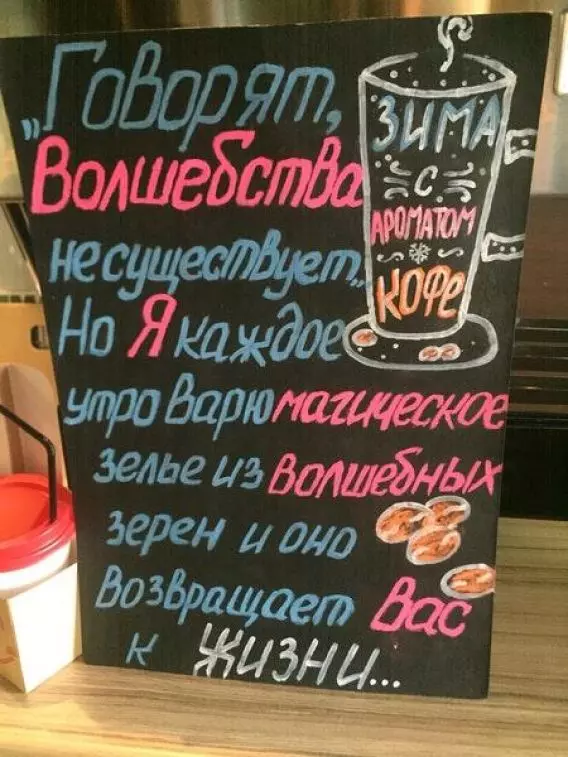 „Говорят,
Волшебства
не существует„
Но Я каждое
утро варю магическое
зелье из волшебных
зерен и оно
возвращает Вас
к ЖИЗНИ...
ЗИМА
С
АРОМАТОМ
КОФЕ